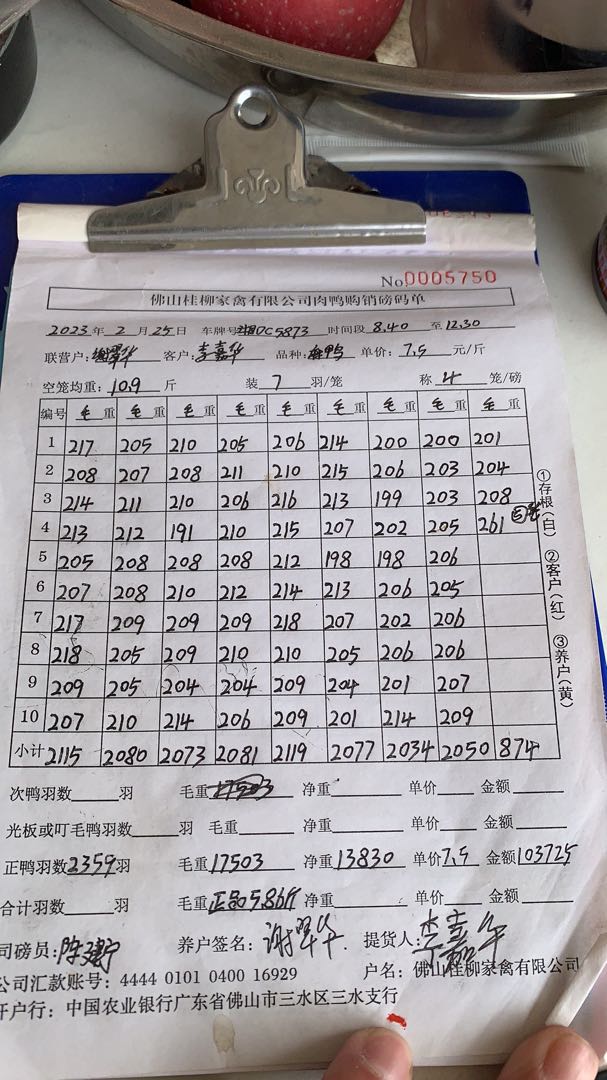 No.0005750
佛山桂柳家禽有限公司肉鸭购销磅码单
2023年 2 月 25 日 车牌号 DC5873 时间段 8.40 至 12.30
联营户：谢翠华 客户：李嘉华 品种： 鸭 单价：7.5 元/斤
空笼均重：10.9 斤 装 7 羽/笼 称 4 笼/磅
编号 毛重 毛重 毛重 毛重 毛重 毛重 毛重 毛重 毛重
1 217 205 210 205 206 214 200 200 201
2 208 207 208 211 210 215 206 203 204
3 214 211 210 206 216 213 199 203 208
4 213 212 191 210 215 207 202 205 261
5 205 208 208 208 212 198 198 206
6 207 208 210 212 214 213 206 205
7 217 209 209 209 218 207 202 206
8 218 205 209 210 210 205 206 206
9 209 205 204 204 209 204 201 207
10 207 210 214 206 209 201 214 209
小计 2115 2080 2073 2081 2119 2077 2034 2050 874
①存根(白) ②客户(红) ③养户(黄)
次鸭羽数 羽 毛重 17503 净重 单价 金额
光板或叮毛鸭羽数 羽 毛重 净重 单价 金额
正鸭羽数 2359 羽 毛重 17503 净重 13830 单价 7.5 金额 103725
合计羽数 羽 毛重 正品5.86斤 净重 单价 金额
司磅员：陈建宁 养户签名：谢翠华 提货人：李嘉华
公司汇款账号：4444 0101 0400 16929 户名：佛山桂柳家禽有限公司
开户行：中国农业银行广东省佛山市三水区三水支行